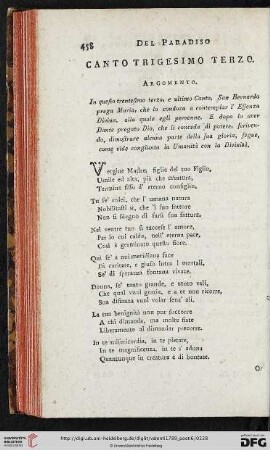 458
DEL PARADISO
CANTO TRIGESIMO TERZO.
ARGOMENTO.
In questo trentesimo terzo, e ultimo Canto, San Bernardo
prega Maria, che lo conduca a contemplar l' Essenza
Divina, alla quale egli pervenne. E dopo lo aver
Dante pregato Dio, che li conceda di potere, scriven-
do, dimostrare alcuna parte della sua gloria, segue,
come vide congiunta la Umanità con la Divinità.
Vergine Madre, figlia del tuo Figlio,
Umile ed alta, più che creatura,
Termine fisso d' eterno consiglio,
Tu se' colei, che l' umana natura
Nobilitasti sì, che 'l suo fattore
Non si sdegnò di farsi sua fattura.
Nel ventre tuo si raccese l' amore,
Per lo cui caldo, nell' eterna pace,
Così è germinato questo fiore.
Qui se' a noi meridiana face
Di caritate, e giuso intra i mortali,
Se' di speranza fontana vivace.
Donna, se' tanto grande, e tanto vali,
Che qual vuol grazia, e a te non ricorre,
Sua disianza vuol volar senz' ali.
La tua benignità non pur soccorre
A chi dimanda, ma molte fiate
Liberamente al dimandar precorre.
In te misericordia, in te pietate,
In te magnificenza, in te s' aduna
Quantunque in creatura è di bontate.
UNIVERSITÄTS-
BIBLIOTHEK
HEIDELBERG
http://digi.ub.uni-heidelberg.de/diglit/
© Universitätsbibliothek Heidelberg
gefördert durch die
DFG